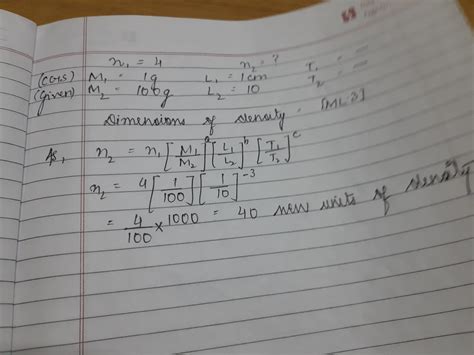 n₁ = 4 n₂ = ? T₁ = –
(CGS) M₁ = 1g L₁ = 1cm T₂ = –
(Given) M₂ = 100g L₂ = 10
Dimensions of density = [ML-3]
As, n₂ = n₁ [M₁/M₂]^a [L₁/L₂]^b [T₁/T₂]^c
n₂ = 4 [1/100] [1/10]^-3
= 4/100 × 1000 = 40 new units of density